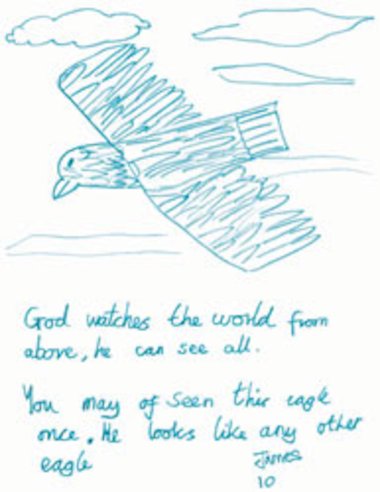 God watches the world from
above, he can see all.
You may of seen this eagle
once. He looks like any other
eagle
James
10